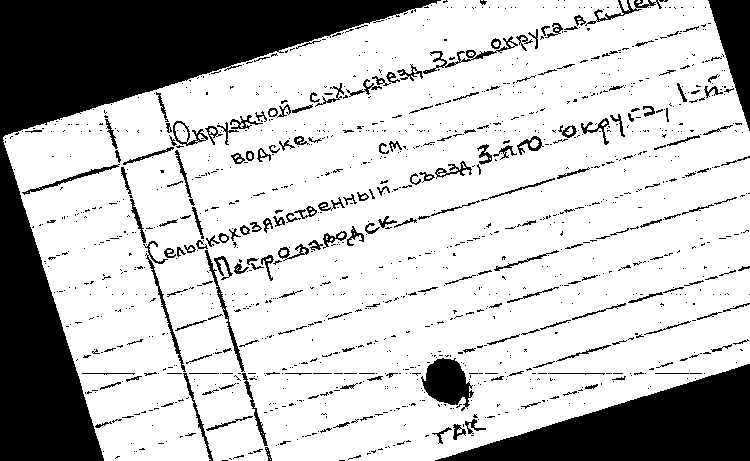 Окружной с.-х. съезд 3-го округа в г. Петро
водске.
см.
Сельскохозяйственный съезд, 3-го округа, 1-й.
Петрозаводск
ГАК